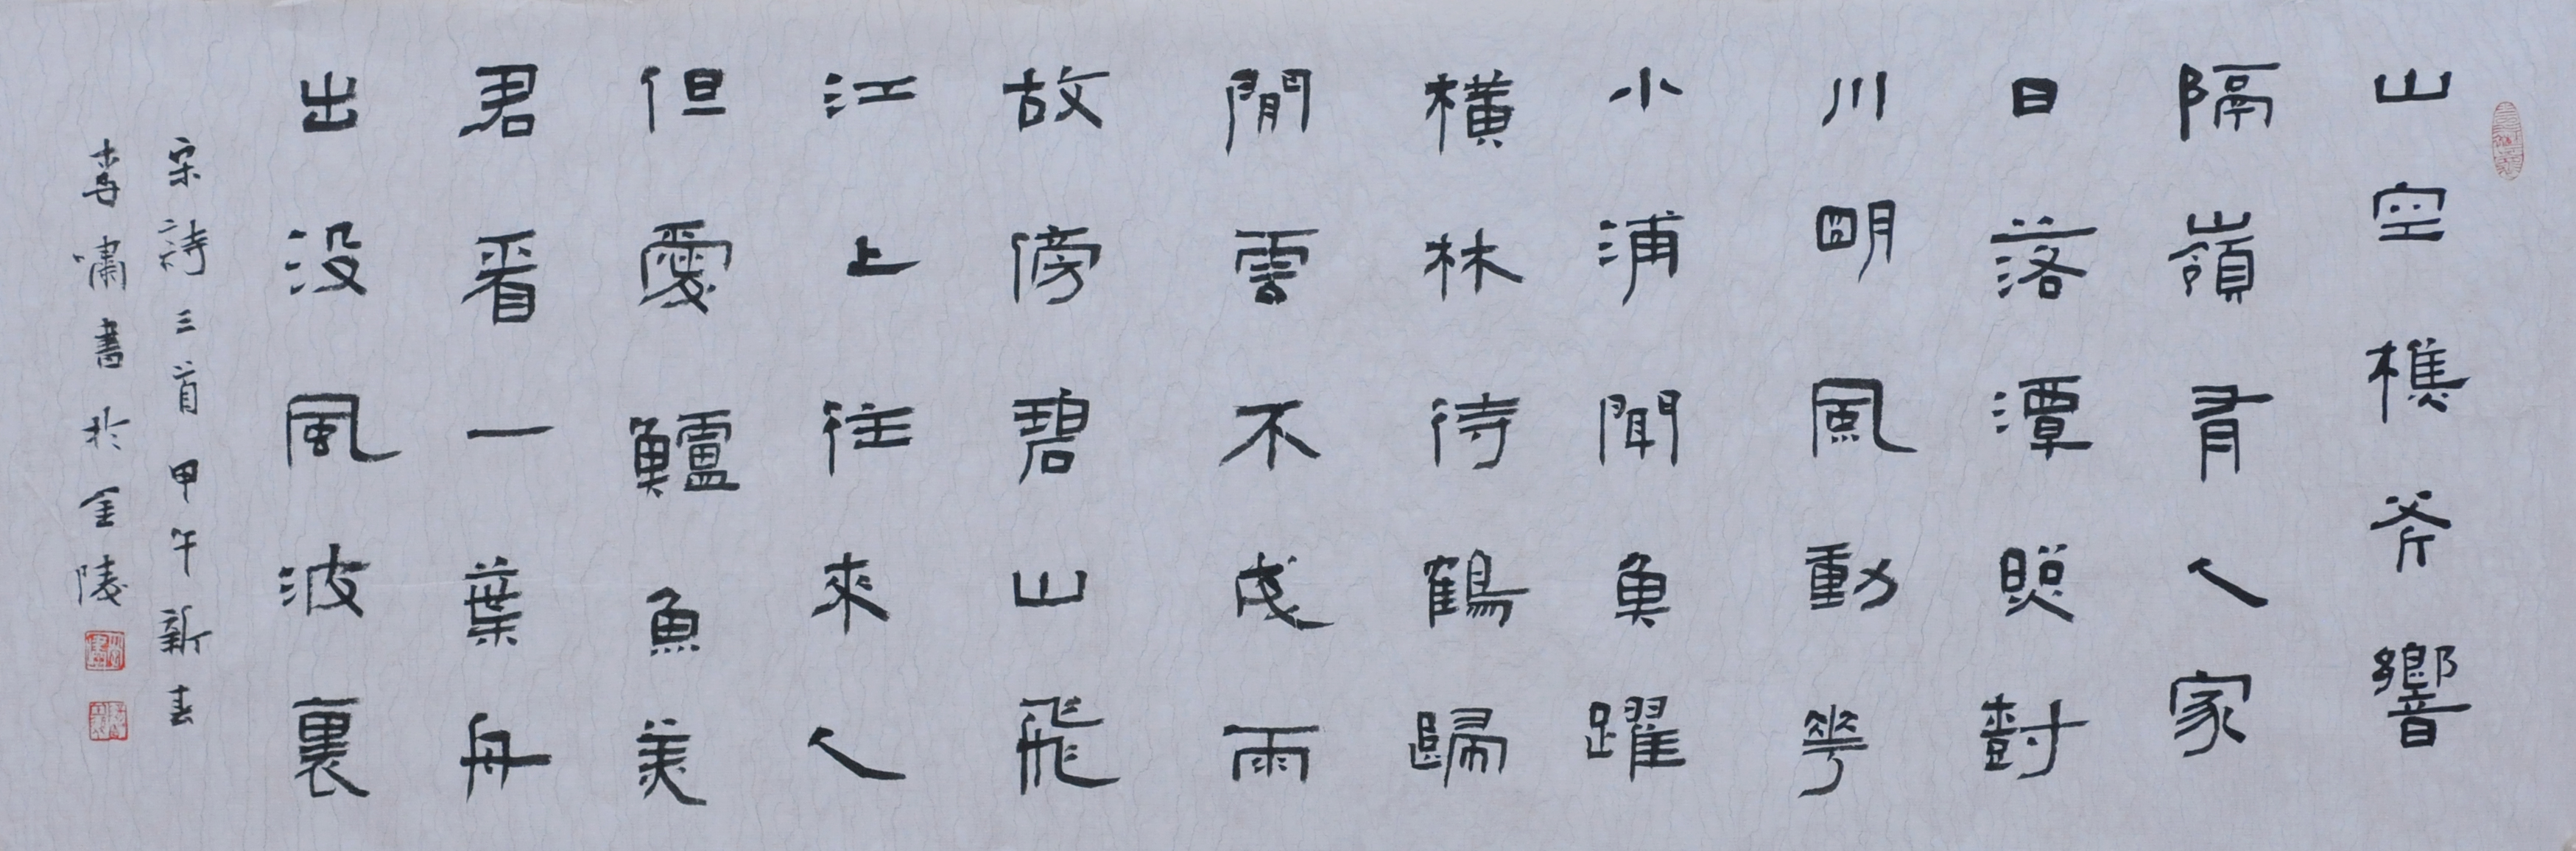 山空樵斧響
隔嶺有人家
日落潭照樹
川明風動華
小浦聞魚躍
橫林待鶴歸
閒雲不成雨
故傍碧山飛
江上往來人
但愛鱸魚美
君看一葉舟
出沒風波裏
宋詩三首甲午新春
李嘯書於金陵